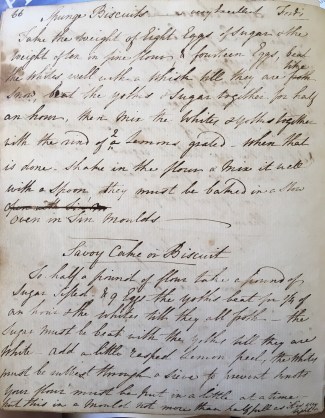 66 Spunge Biscuits very Excellent
Take the weight of Eight Eggs of Sugar & the
weight of six in fine flour, fourteen Eggs, beat
the Whites well with a Whisk till they are
beat the yolks & Sugar together for half
an hour, then mix the Whites & yolks together
with the rind of 2 Lemons, grated – when that
is done. Shake in the flour & mix it well
with a Spoon they must be baked in a Slow
oven in Tin Moulds
Savoy Cake or Biscuit
To half a pound of flour take a pound of
Sugar sifted & 9 Eggs the yolks beat for 3/4 of
an hour & the Whites till they all froth – the
Sugar must be beat with the yolks till they are
White – add a little rasped Lemon peel, the Whites
must be put through a Sieve to prevent knots
your flour must be put in a little at a time –
put this in a Mould not more than half full